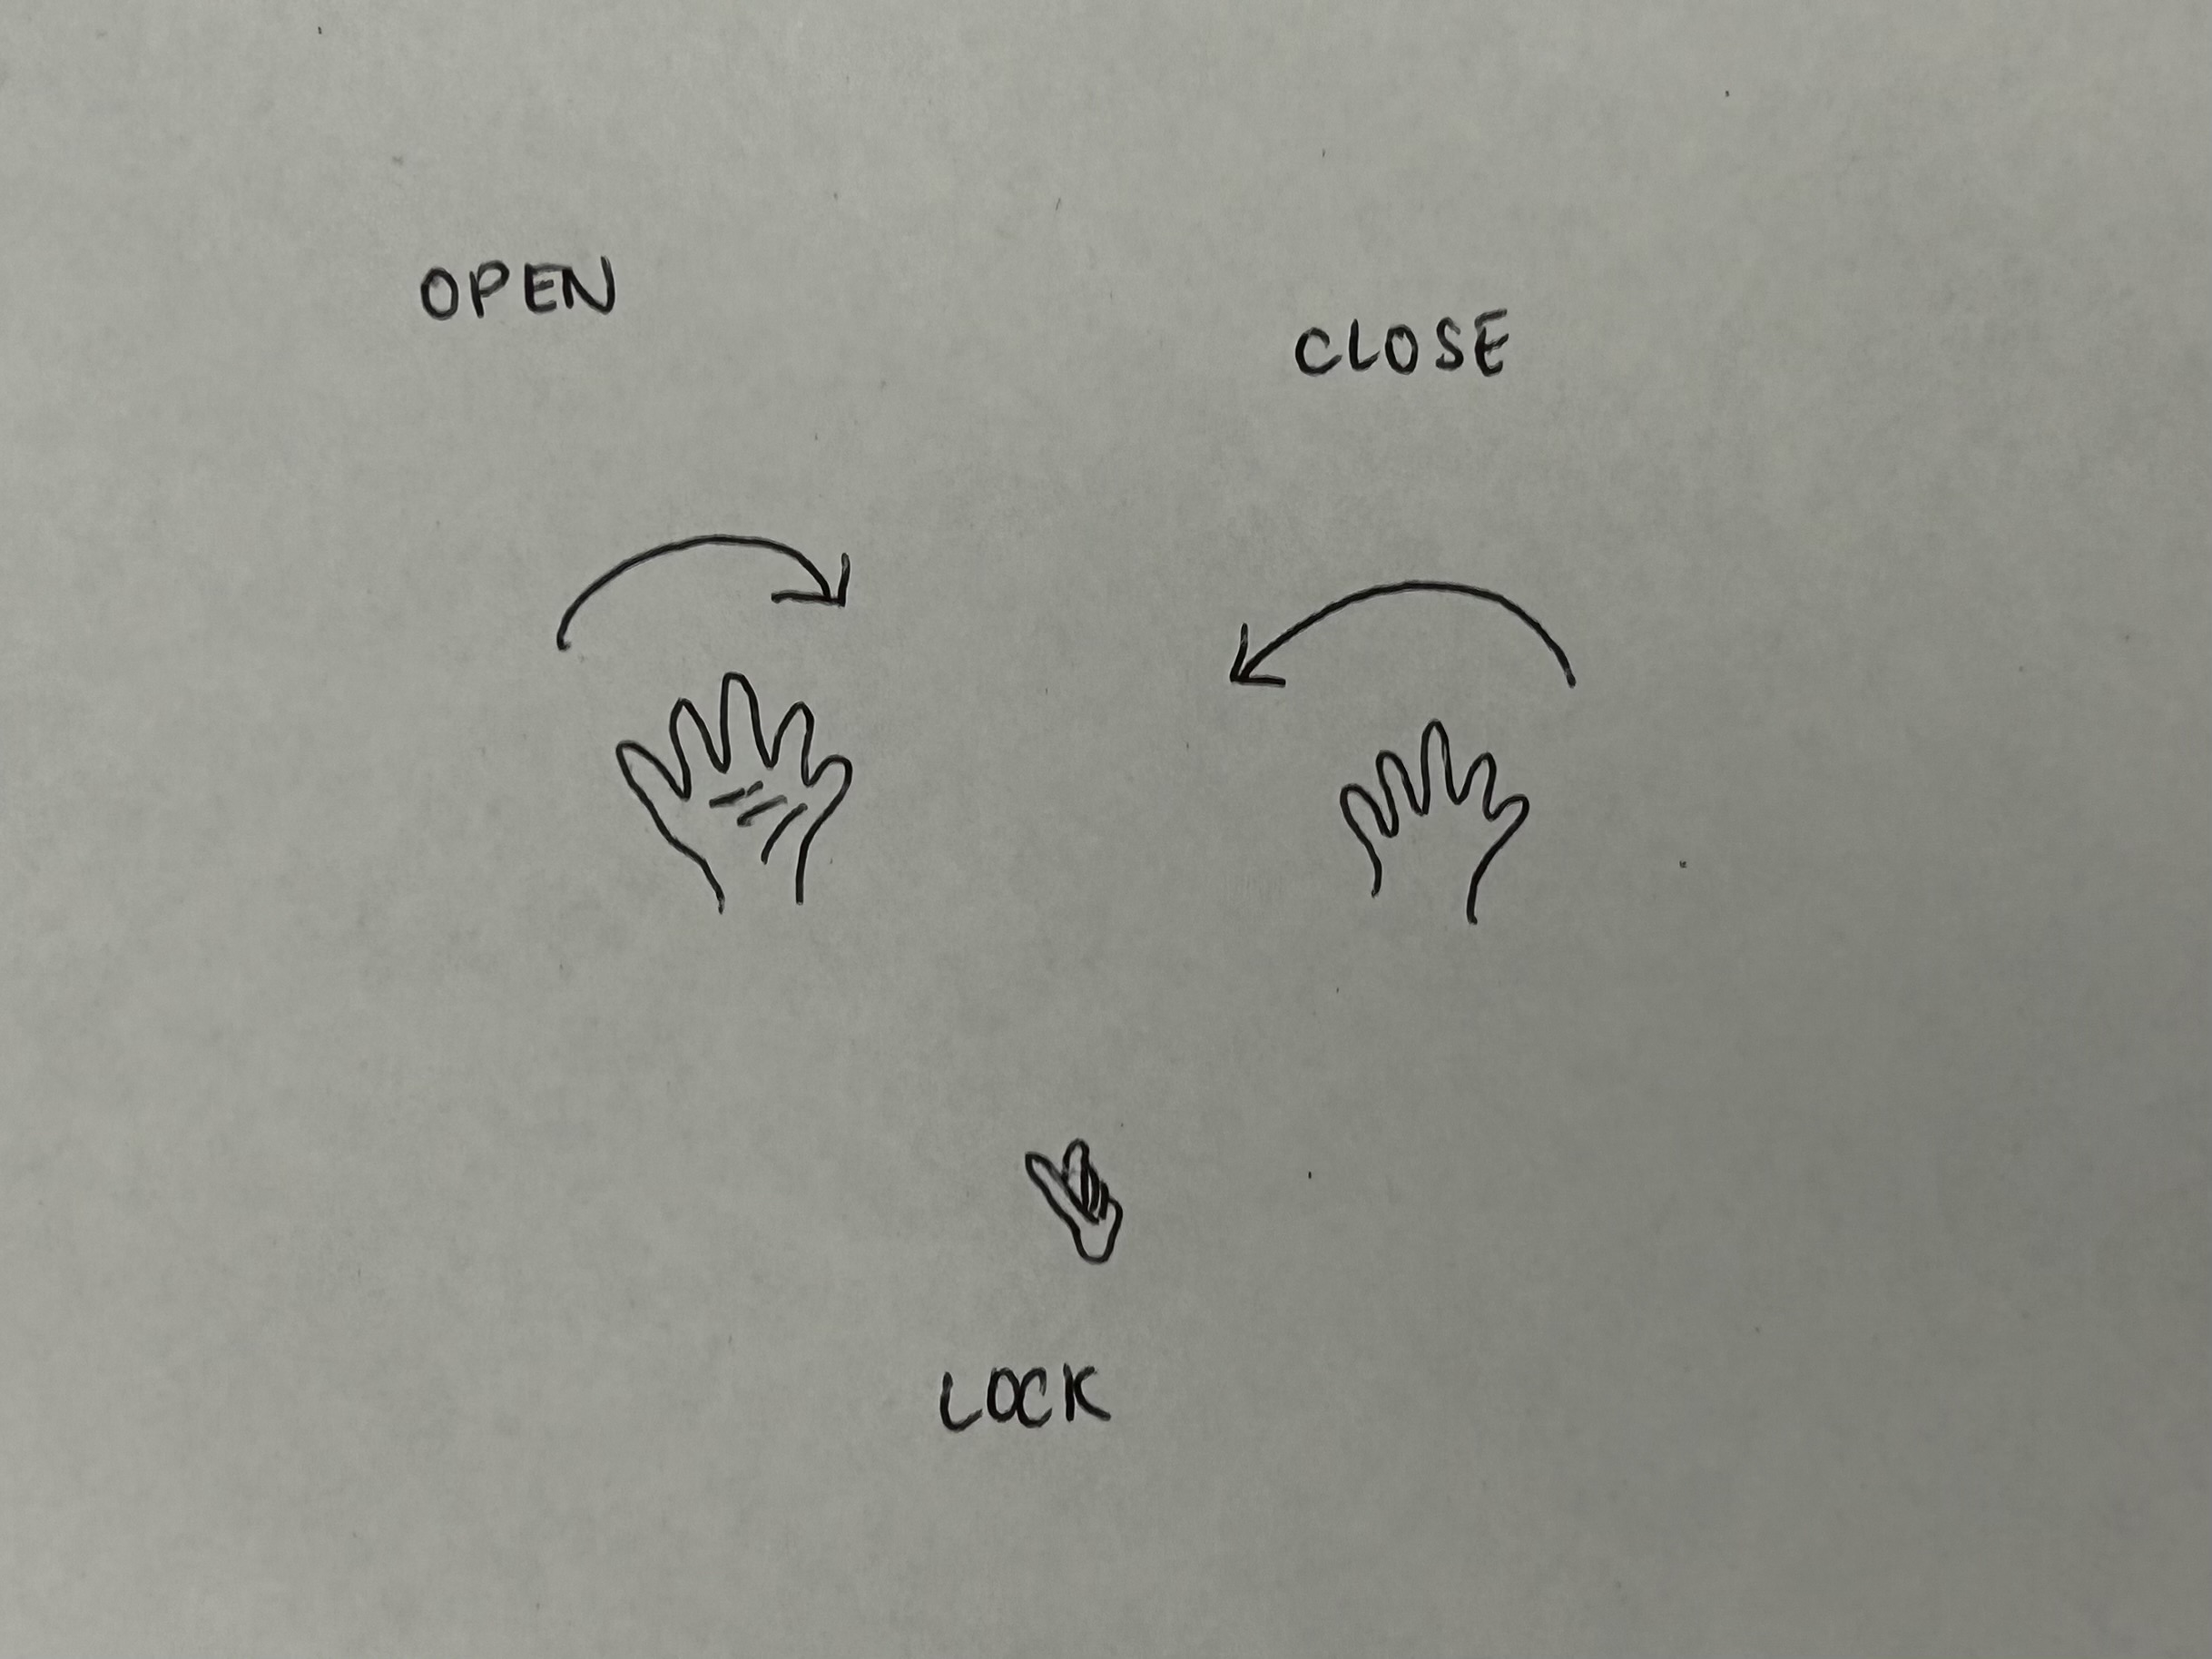 OPEN
CLOSE
LOCK